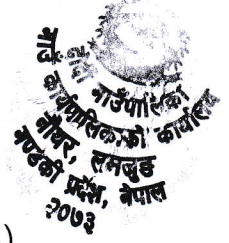 गाउँपालिका
गाउँ कार्यपालिकाको कार्यालय
चौथर, लमजुङ
गण्डकी प्रदेश, नेपाल
२०७३
)